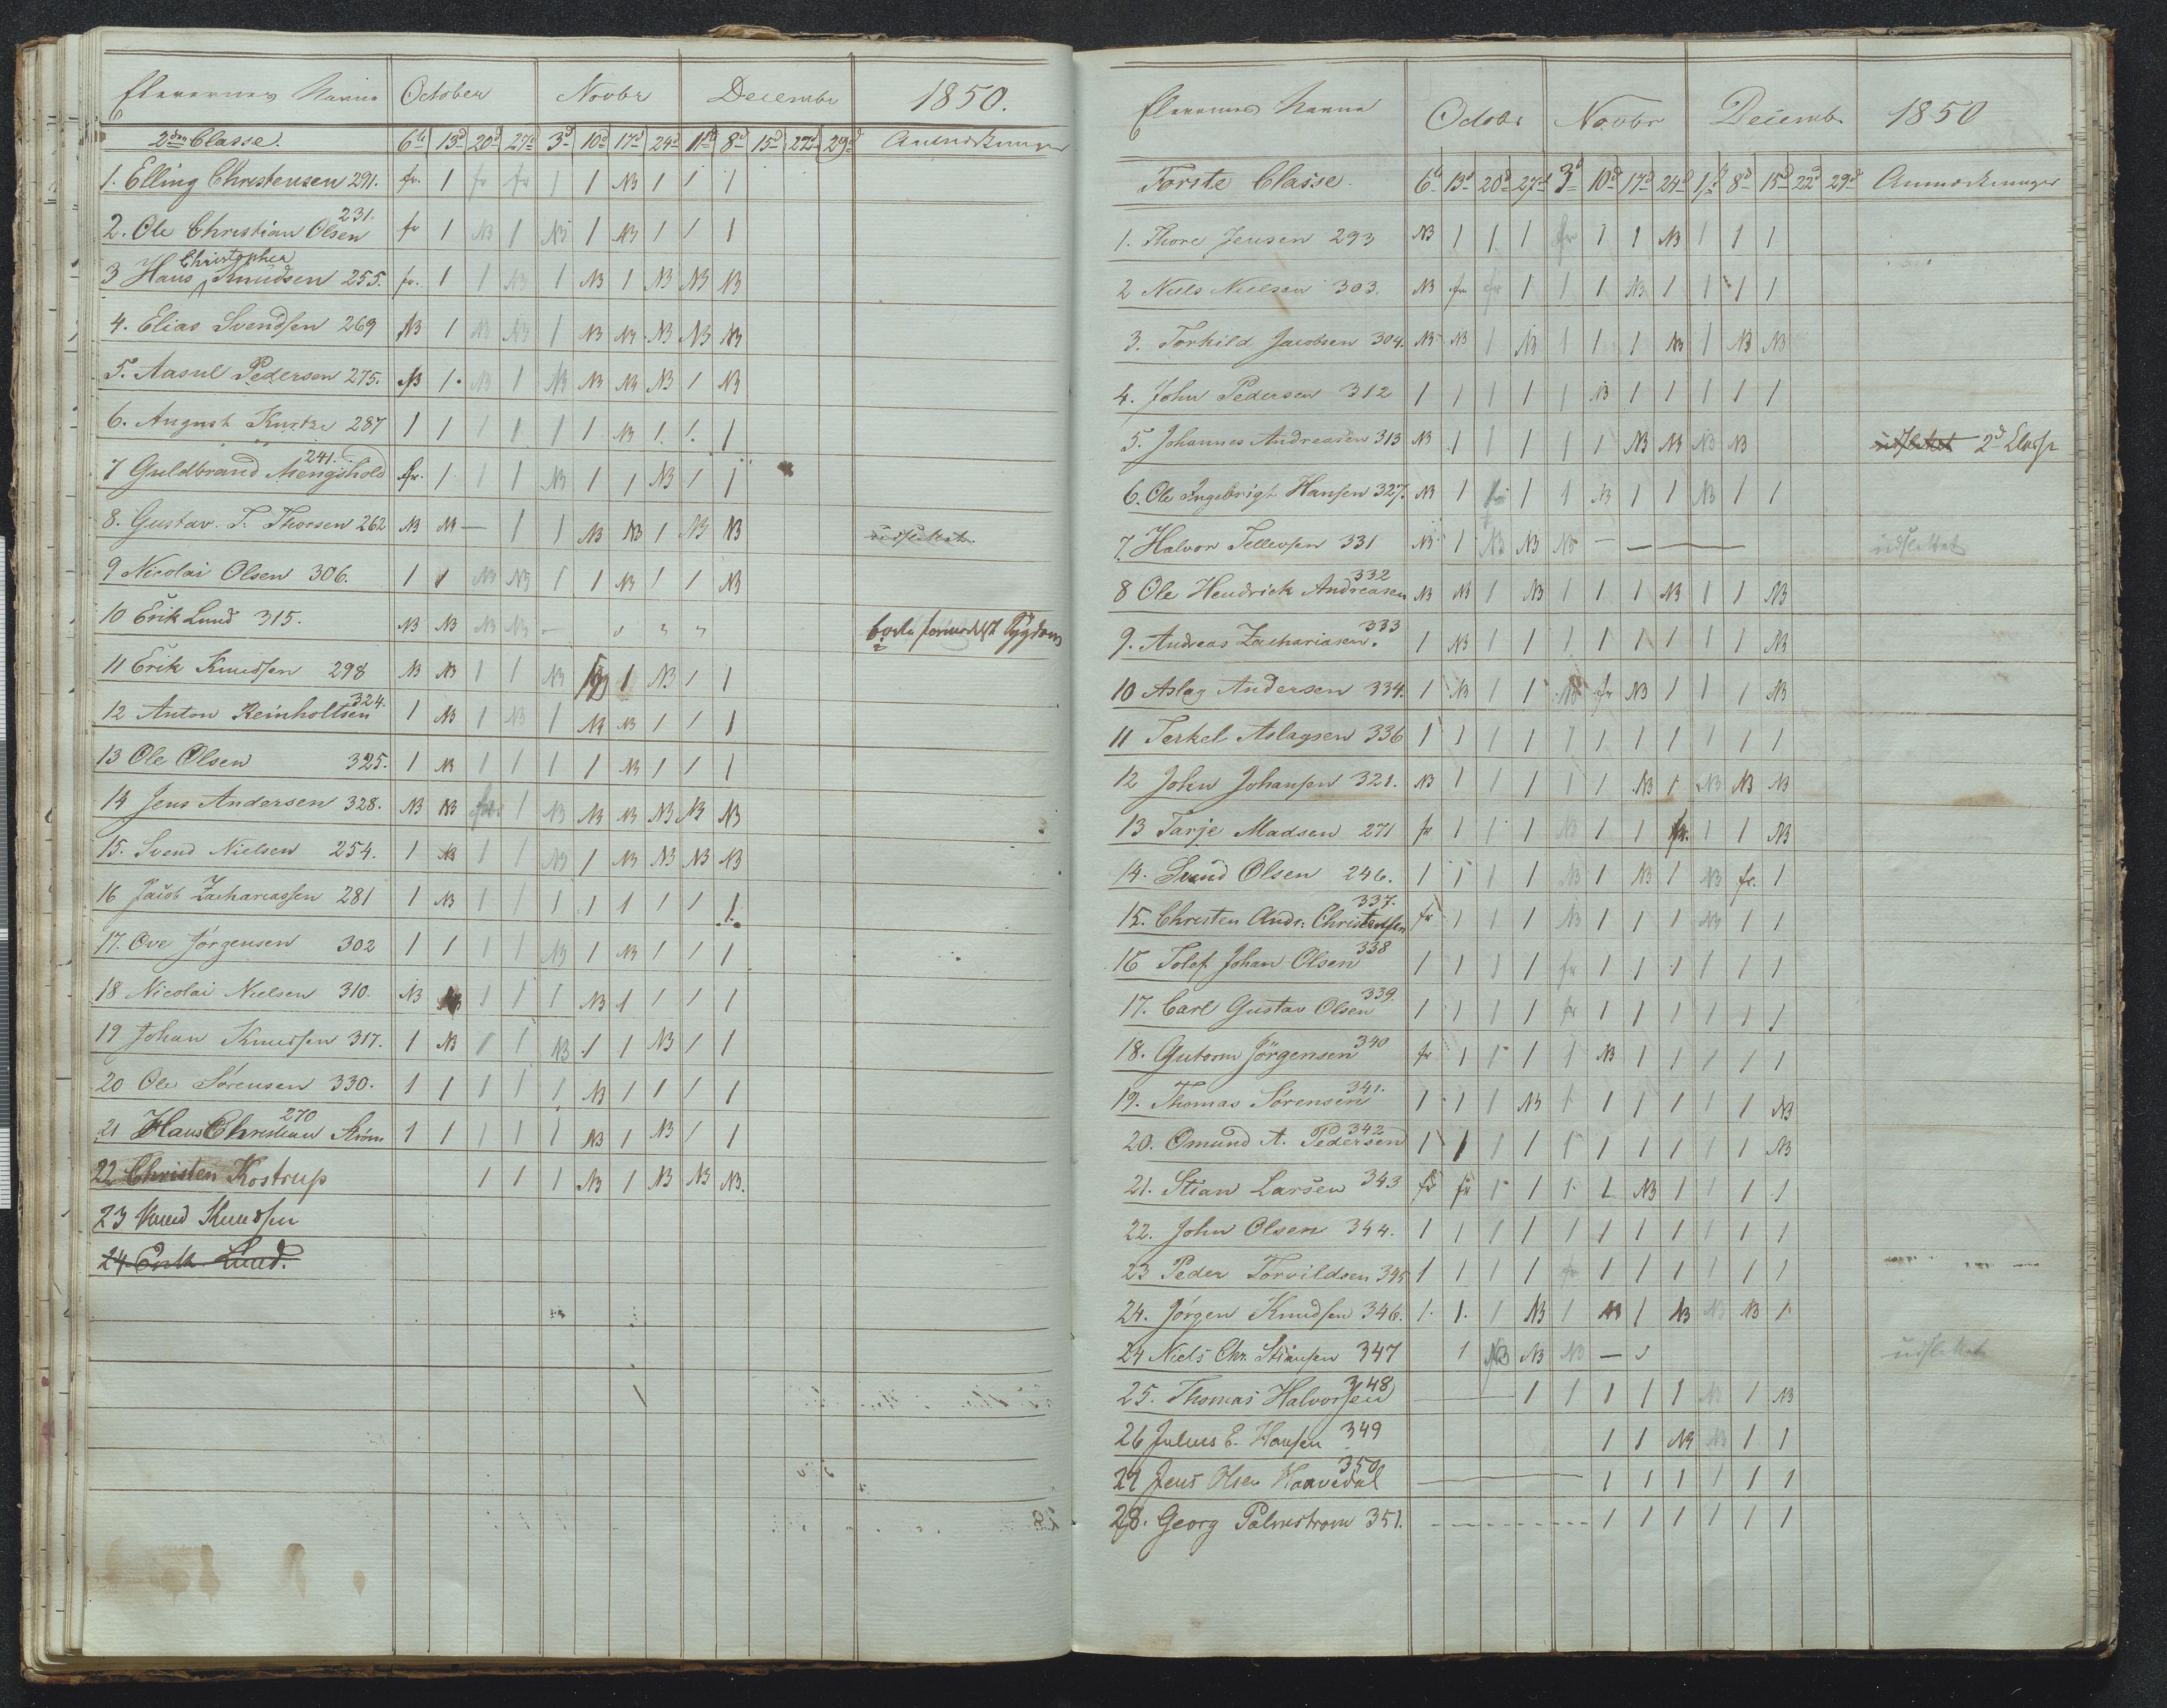 Elevernes Navne October Novbr Decembr 1850.
2den Classe. 6te 13d 20d 27d 3d 10d 17d 24d 1ste 8d 15d 22d 29d Anmerkninger
1. Elling Christensen 291. fr. 1 fr fr 1 1 NB 1 1 1
2. Ole Christian Olsen 231. fr 1 NB 1 NB 1 NB 1 1 1
3 Hans Christopher Knudsen 255. fr. 1 1 NB 1 NB 1 NB NB NB
4. Elias Svendsen 269 NB 1 NB NB 1 NB NB NB NB NB
5. Aasul Pedersen 275. NB 1. NB 1 NB NB NB NB 1 NB
6. August Kuntze 287 1 1 1 1 1 1 NB 1. 1. 1
7 Guldbrand Mengshold 241. fr. 1 1 1 NB 1 1 NB 1 1
8. Gustav. T. Thorsen 262 NB NB — 1 1 NB NB 1 NB NB udslettet.
9 Nicolai Olsen 306. 1 1 NB NB 1 1 NB 1 1 NB
10 Erik Lund 315. NB NB NB NB — borte formedelst Sygdom
11 Erik Knudsen 298 NB NB 1 1 NB 1 NB 1 1
12 Anton Reinholtsen 324. 1 NB 1 NB 1 NB NB 1 1 1
13 Ole Olsen 325. 1 NB 1 1 1 1 NB 1 1 1
14 Jens Andersen 328. NB NB fr. 1 NB NB NB NB NB NB
15. Svend Nielsen 254. 1 NB 1 1 NB 1 NB NB NB NB
16 Jacob Zachariassen 281 1 NB 1 1 1 1 1 1 1 1.
17. Ove Jörgensen 302 1 1 1 1 NB 1 NB 1 1 1
18 Nicolai Nielsen 310. NB NB 1 1 1 NB 1 1 1 1
19 Johan Knudsen 317. 1 NB 1 1 NB 1 1 NB 1 1
20 Ole Sörensen 330. 1 1 1 1 1 NB 1 1 1 1
21 Hans Christian Ström 270 1 1 1 1 1 NB 1 NB 1 1
22 Christen Kostrup 1 1 1 NB 1 NB NB NB.
23 Knud Knudsen
24 Erik Lund.
Elevernes Navne Octobr Novbr Decembr 1850
Förste Classe. 6te 13d 20d 27d 3d 10d 17d 24d 1ste 8d 15d 22d 29d Anmerkninger
1. Thore Jensen 293 NB 1 1 1 fr 1 1 NB 1 1 1
2 Niels Nielsen 303. NB fr fr 1 1 1 NB 1 1 1 1
3. Torkild Jacobsen 304. NB NB 1 NB 1 1 1 NB 1 NB NB
4. John Pedersen 312 1 1 1 1 1 NB 1 1 1 1 1
5. Johannes Andreasen 313 NB 1 1 1 1 1 NB NB NB NB udslettet 2d Classe
6. Ole Ingebrigt Hansen 327. NB 1 1 1 NB 1 1 NB 1 1
7. Halvor Tellevsen 331 NB 1 NB NB NB — — — udslettet
8 Ole Hendrick Andreasen 332 NB NB 1 NB 1 1 1 NB 1 1 NB
9. Andreas Zachariasen. 333 1 NB 1 1 1 1 1 1 1 1 NB
10 Aslag Andersen 334. 1 NB 1 1 NB fr NB 1 1 1 NB
11 Terkel Aslagsen 336 1 1 1 1 1 1 1 1 1 1 1
12 John Johansen 321. NB 1 1 1 1 1 NB 1 NB NB NB
13 Tarje Madsen 271 fr 1 1 1 NB 1 1 fr. 1 1 NB
14. Svend Olsen 246. 1 1 1 1 NB 1 NB 1 NB fr. 1
15. Christen Andr. Christensen 337. fr 1 1 1 NB 1 1 1 NB 1 1
16 Tolef Johan Olsen 338 1 1 1 1 fr 1 1 1 1 1 1
17. Carl Gustav Olsen 339. 1 1 1 1 fr 1 1 1 1 1 1
18. Gutorm Jörgensen 340 fr 1 1 1 1 NB 1 1 1 1 1
19. Thomas Sörensen 341. 1 1 1 NB 1 1 1 1 1 1 NB
20. Omund A. Pedersen 342 1 1 1 1 1 1 1 1 1 1 NB
21. Stian Larsen 343 fr fr 1 1 1 1 NB 1 1 1 1
22. John Olsen 344. 1 1 1 1 1 1 1 1 1 1 1
23 Peder Torvildsen 345 1 1 1 1 fr 1 1 1 1 1 1
24. Jörgen Knudsen 346. 1. 1. 1 NB 1 NB 1 NB NB NB 1
24 Niels Chr. Stiansen 347 1 NB NB NB — udslettet
25. Thomas Halvorsen 348 — 1 1 1 1 1 NB 1 NB
26 Julius E. Hansen 349 1 1 NB NB 1 1
27 Jens Olsen Haavedal 350 — 1 1 1 1 1 1
28. Georg Palmstrom 351. - - - - - 1 1 1 1 1 1